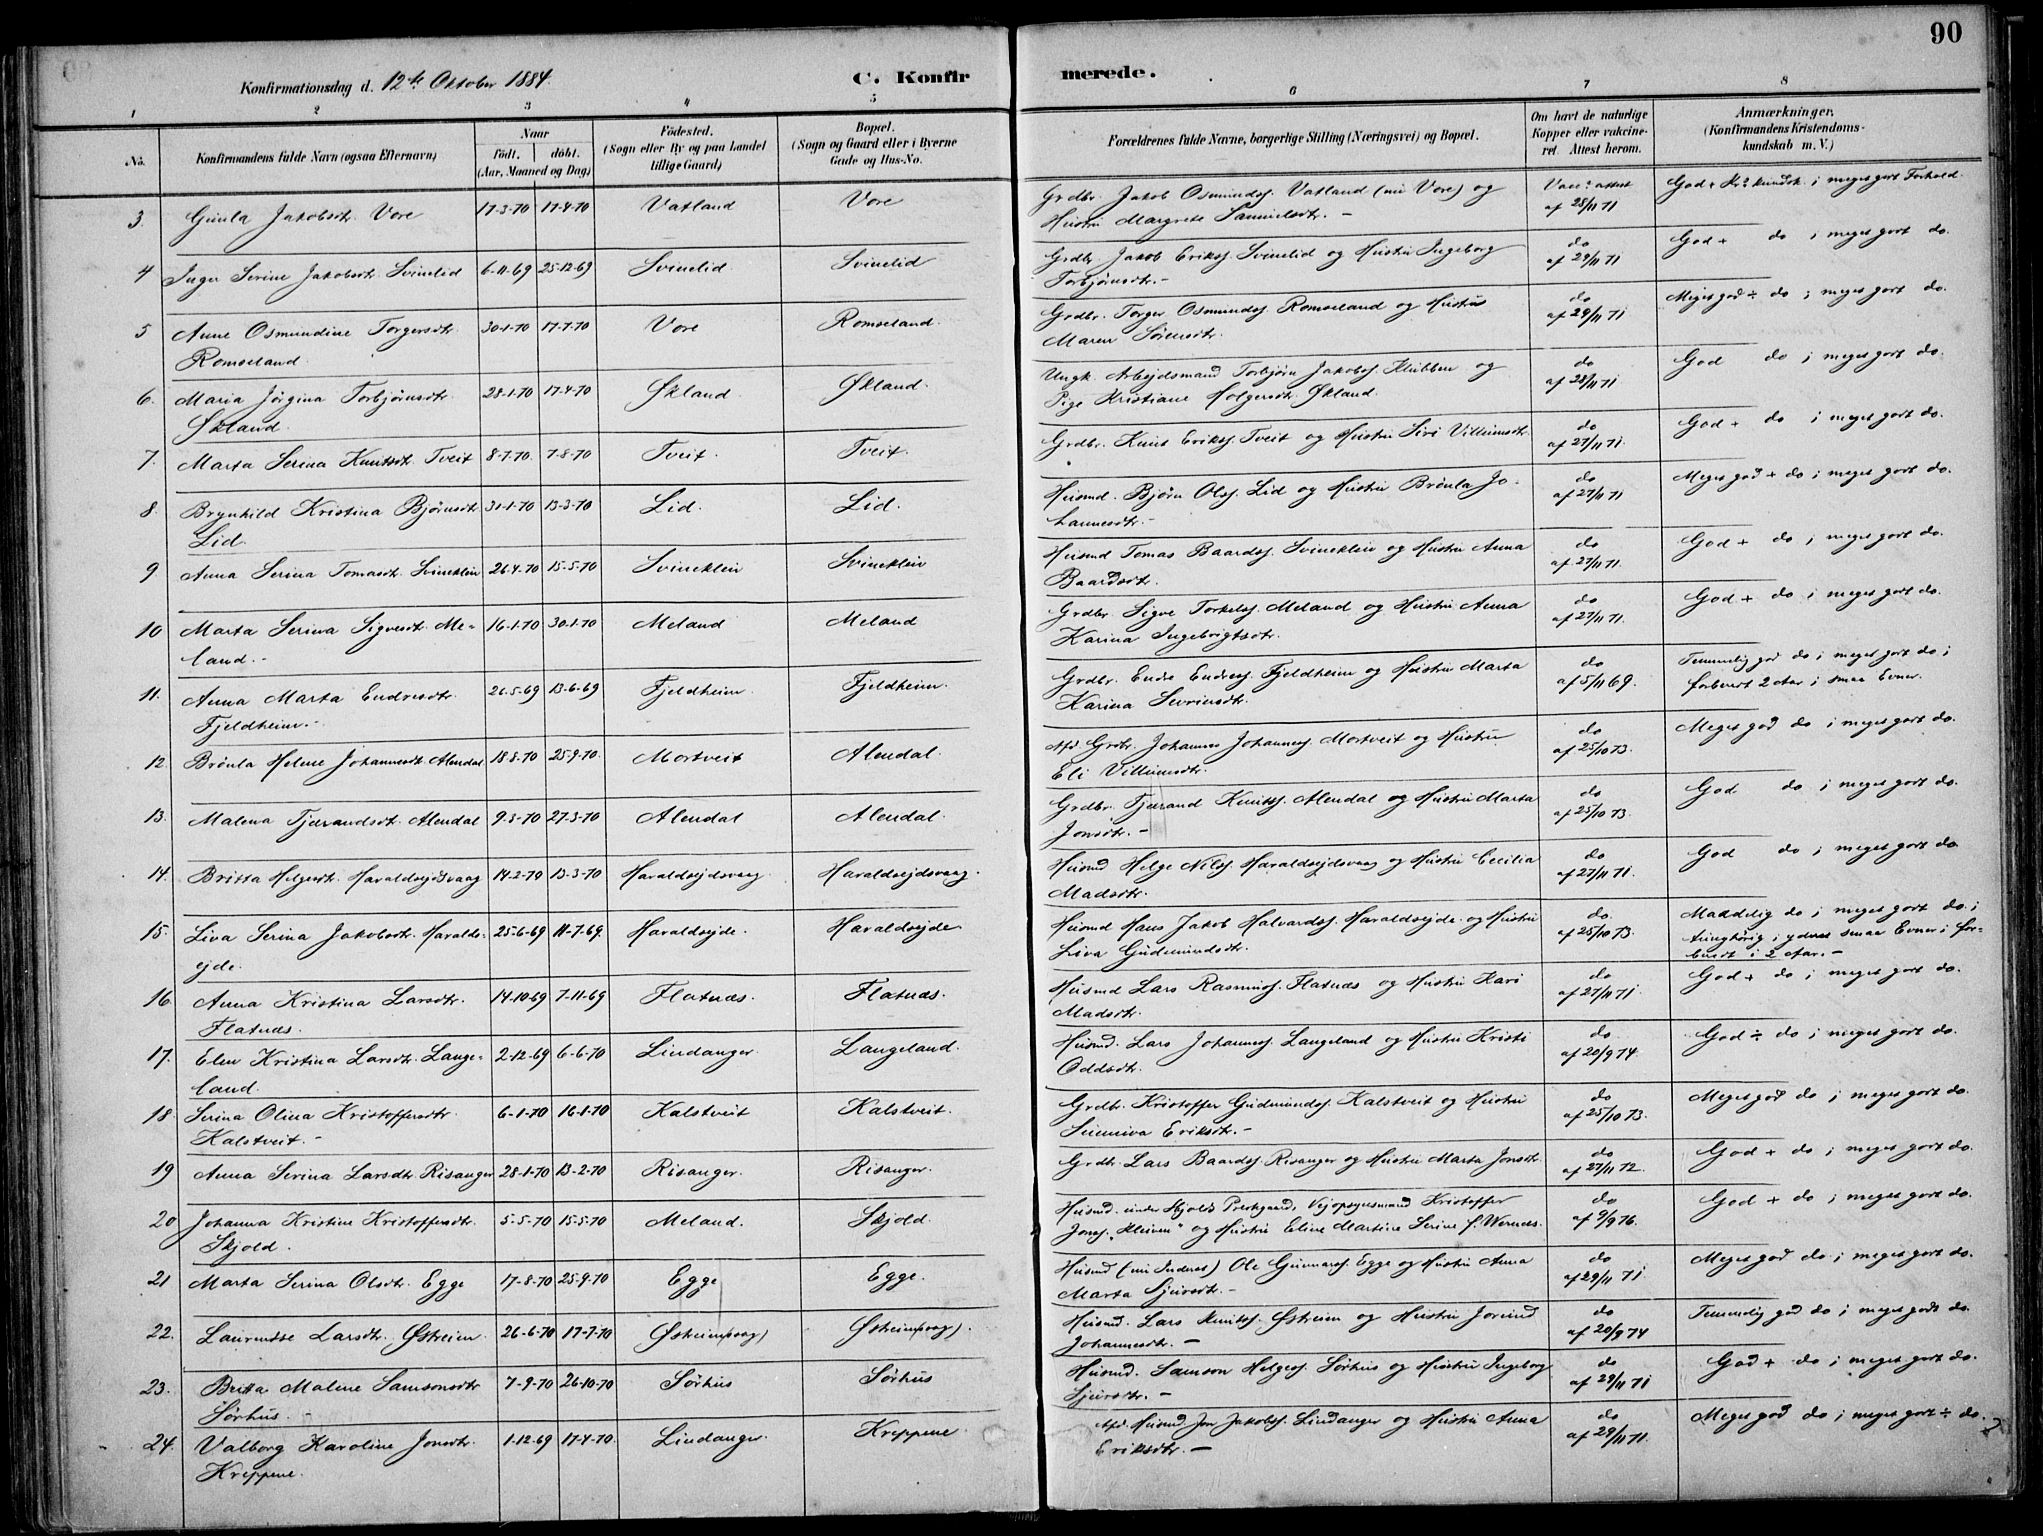 90
Konfirmationsdag d. 12te Oktober 1884.
C. Konfirmerede.
1 2 3 4 5 6 7 8
No. Konfirmandens fulde Navn (ogsaa Efternavn) Naar født. døbt. (Aar, Maaned og Dag) Fødested. (Sogn eller By og paa Landet tillige Gaard) Bopæl. (Sogn og Gaard eller i Byerne Gade og Hus-No. Forældrenes fulde Navne, borgerlige Stilling (Næringsvei) og Bopæl. Om havt de naturlige Kopper eller vakcineret. Attest herom. Anmærkninger. (Konfirmandens Kristendomskundskab m.V.)
3. Gunla Jakobsdtr. Vore 17-3-70 17-4-70 Vatland Vore Grdbr. Jakob Osmundss. Vatland (nu Vore) og Hustru Margrete Samuelsdtr. – Vacc. attest af 28/11 71 God + Kr. kundsk. i meget godt Forhold.
4 Inger Serine Jakobsdtr. Svinelid 6-11-69 25-12-69 Svinelid. Svinelid Grdbr. Jakob Erikss. Svinelid og Hustru Ingeborg Torbjørnsdtr. – do af 29/11 71 God + do i meget godt do.
5 Anne Osmundine Torgersdtr. Romseland. 30-1-70 17-7-70 Vore Romseland. Grdbr. Torger Osmundss. Romseland og Hustru Maren Sørensdtr. do af 29/11 71 Meget god ÷ do i meget godt do.
6. Maria Jørgina Torbjørnsdtr. Økland. 28-1-70 17-4-70 Økland. Økland. Ungk. Arbejdsmand Torbjørn Jakobss. Klubben og Pige Kristiane Holgersdtr. Økland. do af 28/11 71 God do i meget godt do.
7. Marta Serina Knutsdtr. Tveit 8-7-70. 7-8-70 Tveit. Tveit. Grdbr. Knut Erikss. Tveit og Hustru Siri Villumsdtr. do af 27/11 71. God + do i meget godt do.
8. Brynhild Kristina Bjørnsdtr. Lid. 31-1-70 13-3-70 Lid. Lid. Husmd. Bjørn Olss. Lid og Hustru Brønla Johannesdtr. – do af 27/11 71 Meget god + do i meget godt do.
9 Anna Serina Tomasdtr. Svineklein 26-4-70 15-5-70 Svineklein Svineklein Husmd Tomas Baardss. Svineklein og Hustru Anna Baardsdtr. do af 27/11 71. God + do i meget godt do.
10 Marta Serina Sigvesdtr. Meland. – 16-1-70 30-1-70 Meland Meland Grdbr. Sigve Torkelss. Meland og Hustru Anna Karina Ingebrigtsdtr. do af 27/11 71. God + do i meget godt do.
11. Anna Marta Endresdtr. Fjeldheim. – 26-5-69 13-6-69 Fjeldheim. Fjeldheim. Grdbr. Endre Endress. Fjeldheim og Hustru Marta Karina Sevrinsdtr. do af 5/11 69. Temmelig god do i meget godt do i forberedt 2 Aar i smaa Evner.
12. Brønla Helene Johannesdtr. Alendal 18-8-70 25-9-70. Mortveit Alendal. Afd. Grdbr. Johannes Johanness. Mortveit og Hustru Eli Villumsdtr. do af 25/10 73. Meget god do i meget godt do.
13. Malena Tjerandsdtr. Alendal 9-3-70 27-3-70 Alendal Alendal. Grdbr. Tjerand Knutss. Alendal og Hustru Marta Jonsdtr. – do af 25/10 73. God do i meget godt do.
14. Britta Helgesdtr. Haraldsejdsvaag 14-2-70 13-3-70 Haraldsejdsvaag. Haraldsejdsvaag. Husmd Helge Nilss. Haraldsejdsvaag og Hustru Cecilia Madsdtr. do af 27/11 71. God do i meget godt do
15. Liva Serina Jakobsdtr. Haraldsejde. 25-6-69 11-7-69. Haraldsejde. Haraldsejde Husmd Hans Jakob Halvardss. Haraldsejde. og Hustru Liva Gudmundsdtr. do. af 25/10 73. Maadelig do i meget godt do. i tunghørig i yderst smaa Evner i forberedt i 2 Aar. –
16. Anna Kristina Larsdtr. Flatnæs. 14-10-69 7-11-69 Flatnæs. Flatnæs. Husmd Lars Rasmuss. Flatnæs og Hustru Kari Madsdtr. do af 27/11 71. God + do i meget godt do.
17. Elen Kristina Larsdtr. Langeland. 2-12-69 6-6-70 Lindanger. Langeland. Husmd. Lars Johanness. Langeland og Hustru Kristi Oddsdtr. do af 20/9 74. God ÷ do i meget godt do.
18. Serina Olina Kristoffersdtr. Kalstveit. – 6-1-70 16-1-70 Kalstveit Kalstveit. Grdbr. Kristoffer Gudmundss. Kalstveit og Hustru Sunniva Eriksdtr. – do af 25/10 73. Meget god do i meget godt do.
19 Anna Serina Larsdtr. Risanger 28-1-70 13-2-70 Risanger. Risanger. Grdbr. Lars Baardss. Risanger og Hustru Marta Jonsdtr. do af 27/11 72. God + do i meget godt do.
20 Johanna Kristine Kristoffersdtr. Skjold. 5-5-70 15-5-70 Meland. Skjold. Husmd. under Skjolds Prestegaard, Vejopsynsmand Kristoffer Jonss. "Kleiven" og Hustru Eline Martine Serine f. Wernes. do af 9/9 76. God + do i meget godt do.
21 Marta Serina Olsdtr. Egge 17-8-70 25-9-70 Egge Egge. Husmd (nu Inderst) Ole Gunnarss. Egge og Hustru Anna Marta Sjursdtr. – do af 29/11 71. Meget god do i meget godt do.
22. Laurendse Larsdtr. Østreim. 26-6-70 17-7-70 Østreim(vaag) Østreim(vaag). Husmd. Lars Knutss. Østreim og Hustru Jorund Johannesdtr. – do af 20/9 74 Temmelig god do i meget godt do.
23. Britta Malene Samsonsdtr Sørhus. – 7-9-70 26-10-70 Sørhus Sørhus Husmd. Samson Helgess. Sørhus og Hustru Ingeborg Sjursdtr. – do af 29/11 71 God + do i meget godt do.
24. Valborg Karoline Jonsdtr. Kreppene. 1-12-69 17-4-70. Lindanger. Kreppene. Afd. Husmd. Jon Jakobss. Lindanger og Hustru Anna Eriksdtr. – do af 29/11 71. Meget god do i meget godt ÷ do.